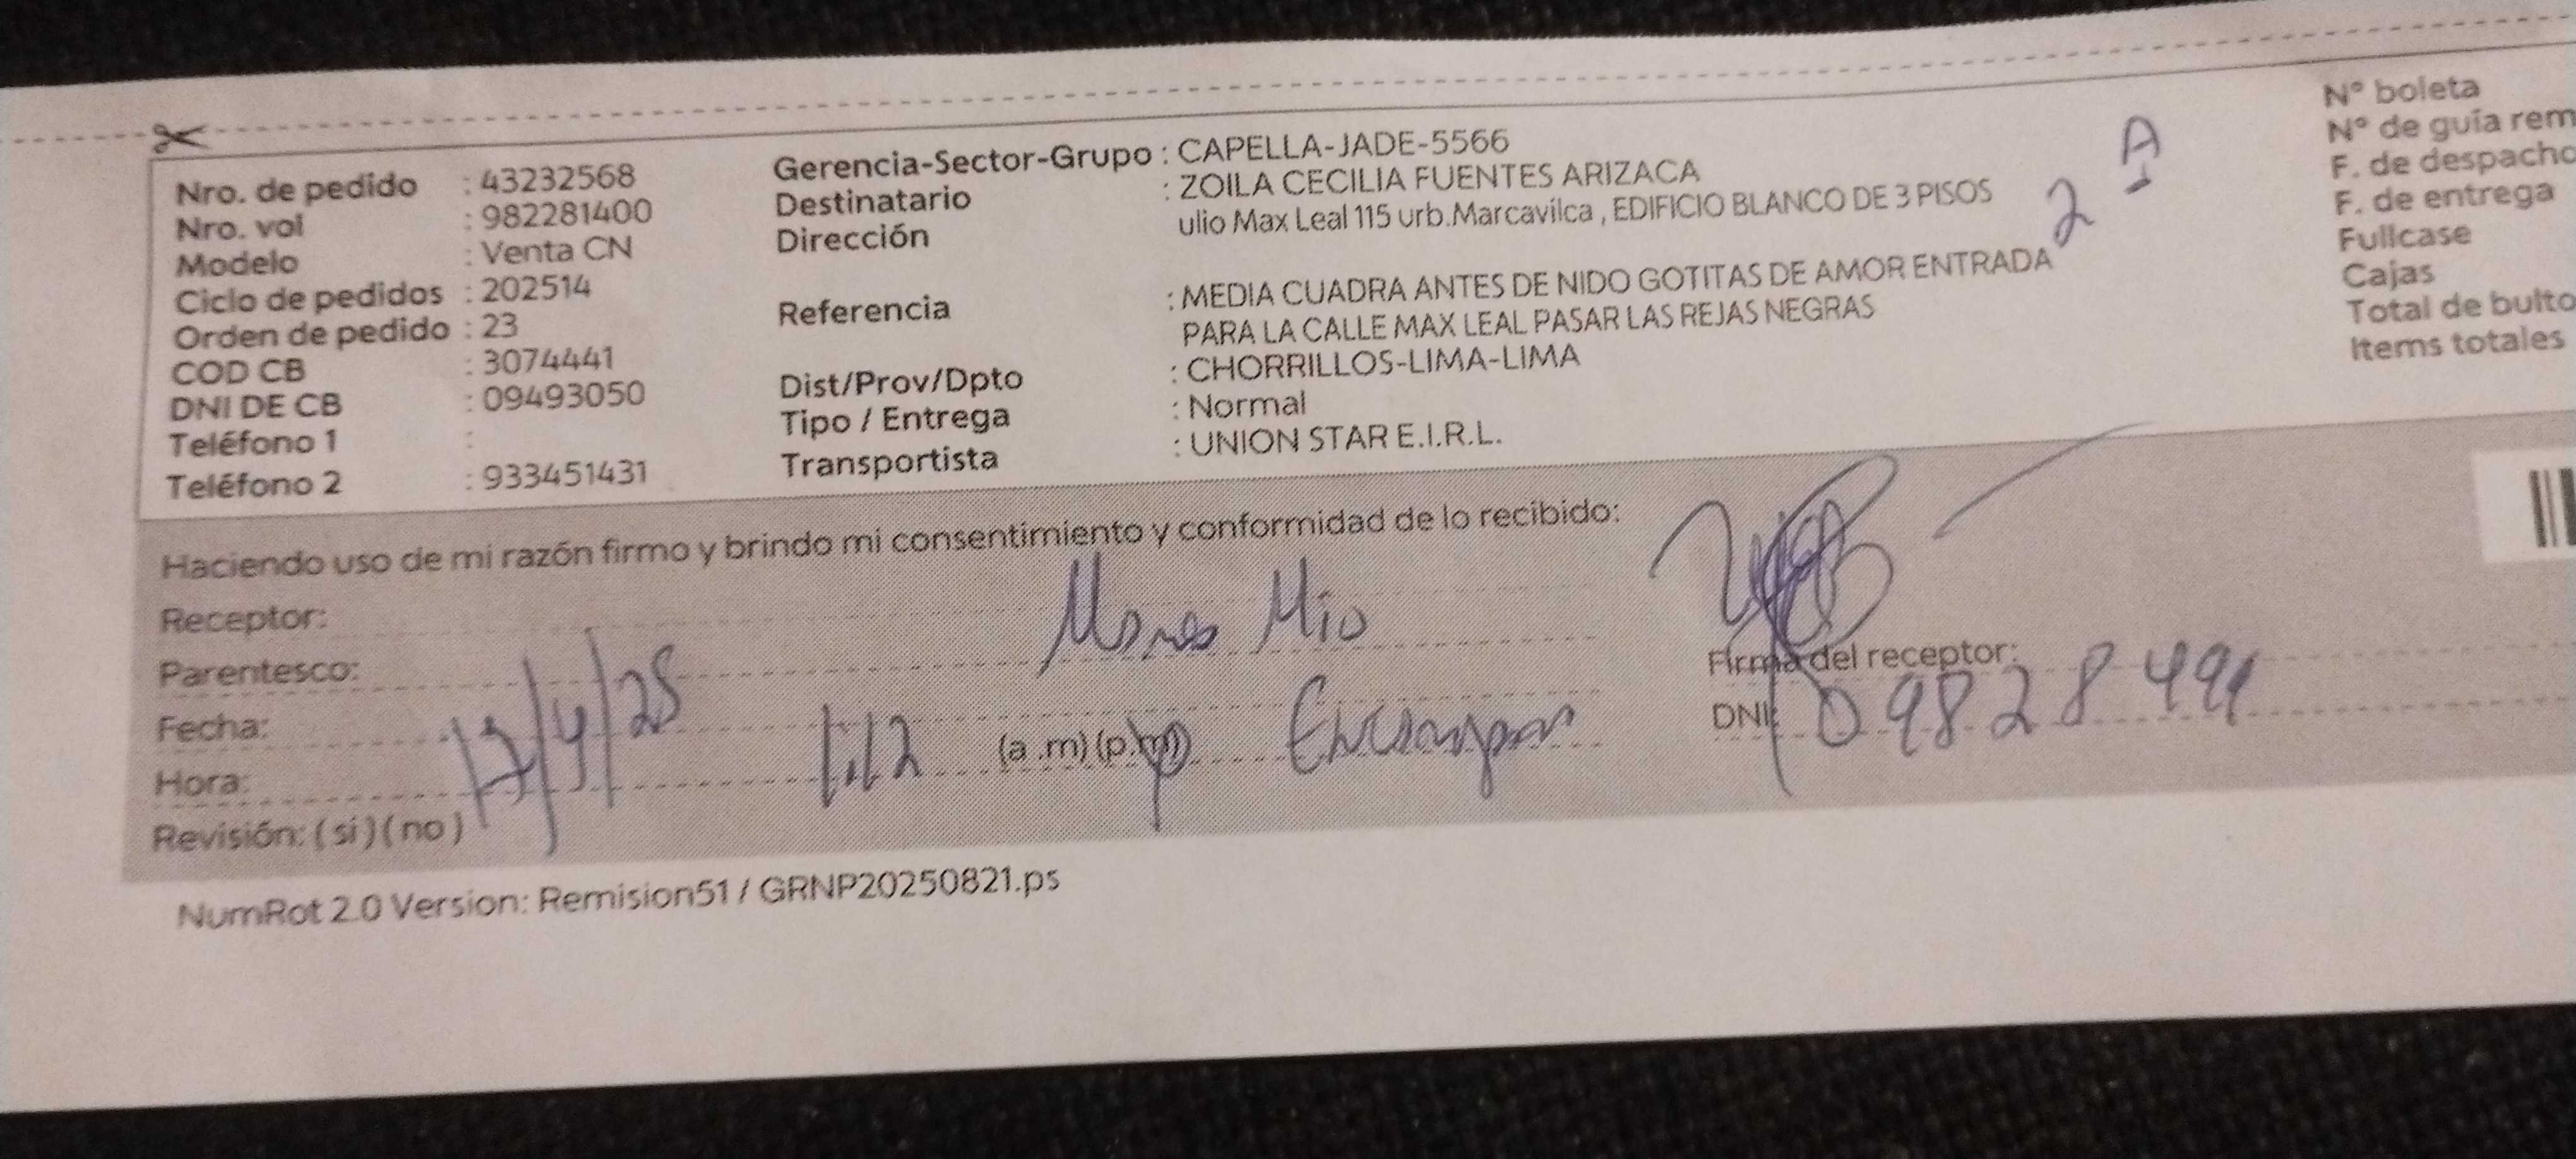 Nro. de pedido : 43232568
Nro. vol : 982281400
Modelo : Venta CN
Ciclo de pedidos : 202514
Orden de pedido : 23
COD CB : 3074441
DNI DE CB : 09493050
Teléfono 1 :
Teléfono 2 : 933451431
Gerencia-Sector-Grupo : CAPELLA-JADE-5566
Destinatario : ZOILA CECILIA FUENTES ARIZACA
Dirección ulio Max Leal 115 urb.Marcavilca , EDIFICIO BLANCO DE 3 PISOS
Referencia : MEDIA CUADRA ANTES DE NIDO GOTITAS DE AMOR ENTRADA
PARA LA CALLE MAX LEAL PASAR LAS REJAS NEGRAS
Dist/Prov/Dpto : CHORRILLOS-LIMA-LIMA
Tipo / Entrega : Normal
Transportista : UNION STAR E.I.R.L.
2 A
N° boleta
N° de guía rem
F. de despacho
F. de entrega
Fullcase
Cajas
Total de bulto
Items totales
Haciendo uso de mi razón firmo y brindo mi consentimiento y conformidad de lo recibido:
Receptor:
Mio
Parentesco:
Firma del receptor:
Fecha:
DNI:
Hora:
(a .m) (p.m)
Revisión: ( si ) ( no )
NumRot 2.0 Version: Remision51 / GRNP20250821.ps